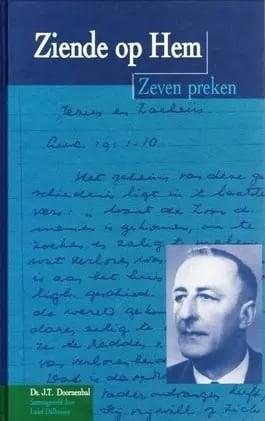 Ziende op Hem
Zeven preken
Jezus en Zacheüs
Luc. 19:1-10
Het geheim van deze ge-
schiedenis ligt in 't laatste
vers: "want de Zoon des
mensen is gekomen, om te
zoeken en zalig te maken
wat verloren was
is aan het
ligh. geschied.
de wereld
zalig te
te redden
van verlorenheid
is de
vader ontvangen heeft,
Hij vrijwillig of zich
Ds. J.T. Doornenbal
Samengesteld door